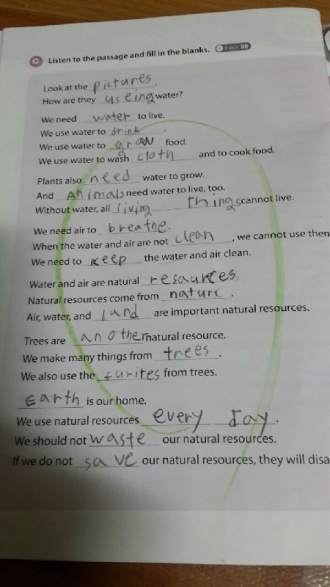 C Listen to the passage and fill in the blanks.
Look at the pictures.
How are they useing water?
We need water to live.
We use water to drink.
We use water to grow food.
We use water to wash cloth and to cook food.
Plants also need water to grow.
And Animals need water to live, too.
Without water, all living things cannot live.
We need air to breathe.
When the water and air are not clean, we cannot use then
We need to keep the water and air clean.
Water and air are natural resaurces.
Natural resources come from nature.
Air, water, and land are important natural resources.
Trees are another natural resource.
We make many things from trees.
We also use the furites from trees.
Earth is our home.
We use natural resources every day.
We should not waste our natural resources.
If we do not save our natural resources, they will disa